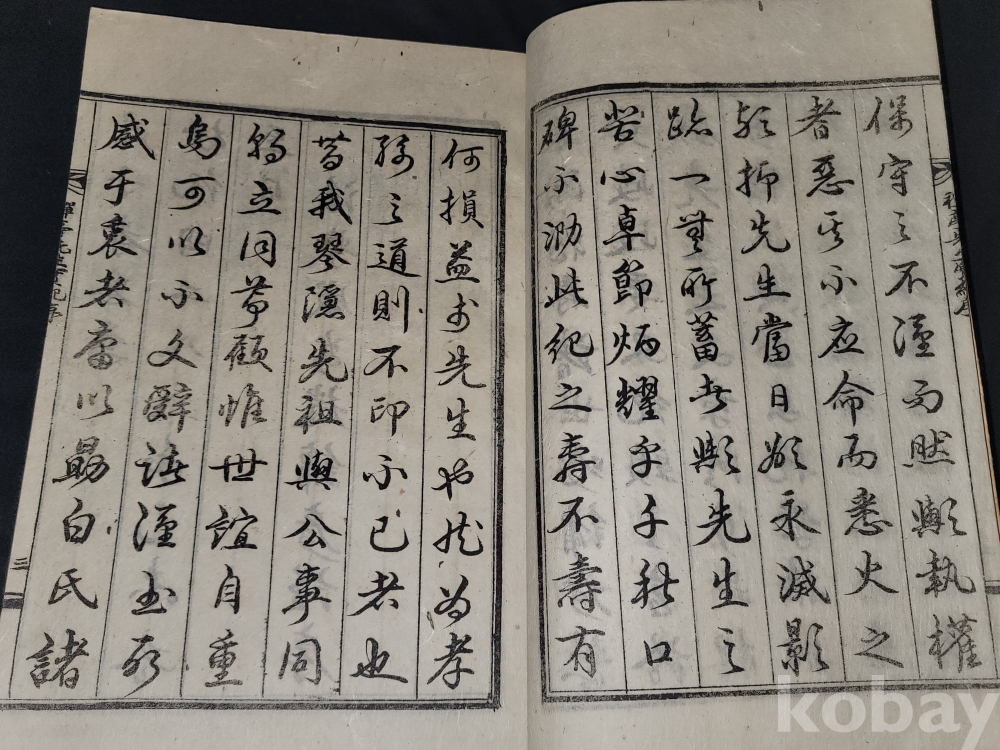 保守之不謹而然歟執權
者惡其不應命而悉火之
歟抑先生當日欲永滅影
跡一無所蓄者歟先生之
苦心卓節炳耀乎千秋口
碑不泐此紀之壽不壽有
何損益於先生也哉然爲孝
孫之道則不印不已者也
昔我琴隱先祖與公事同
節立同節顧惟世誼自重
烏可以不文辭諸謹書所
感于衷者庸以勖白氏諸
三
kobay